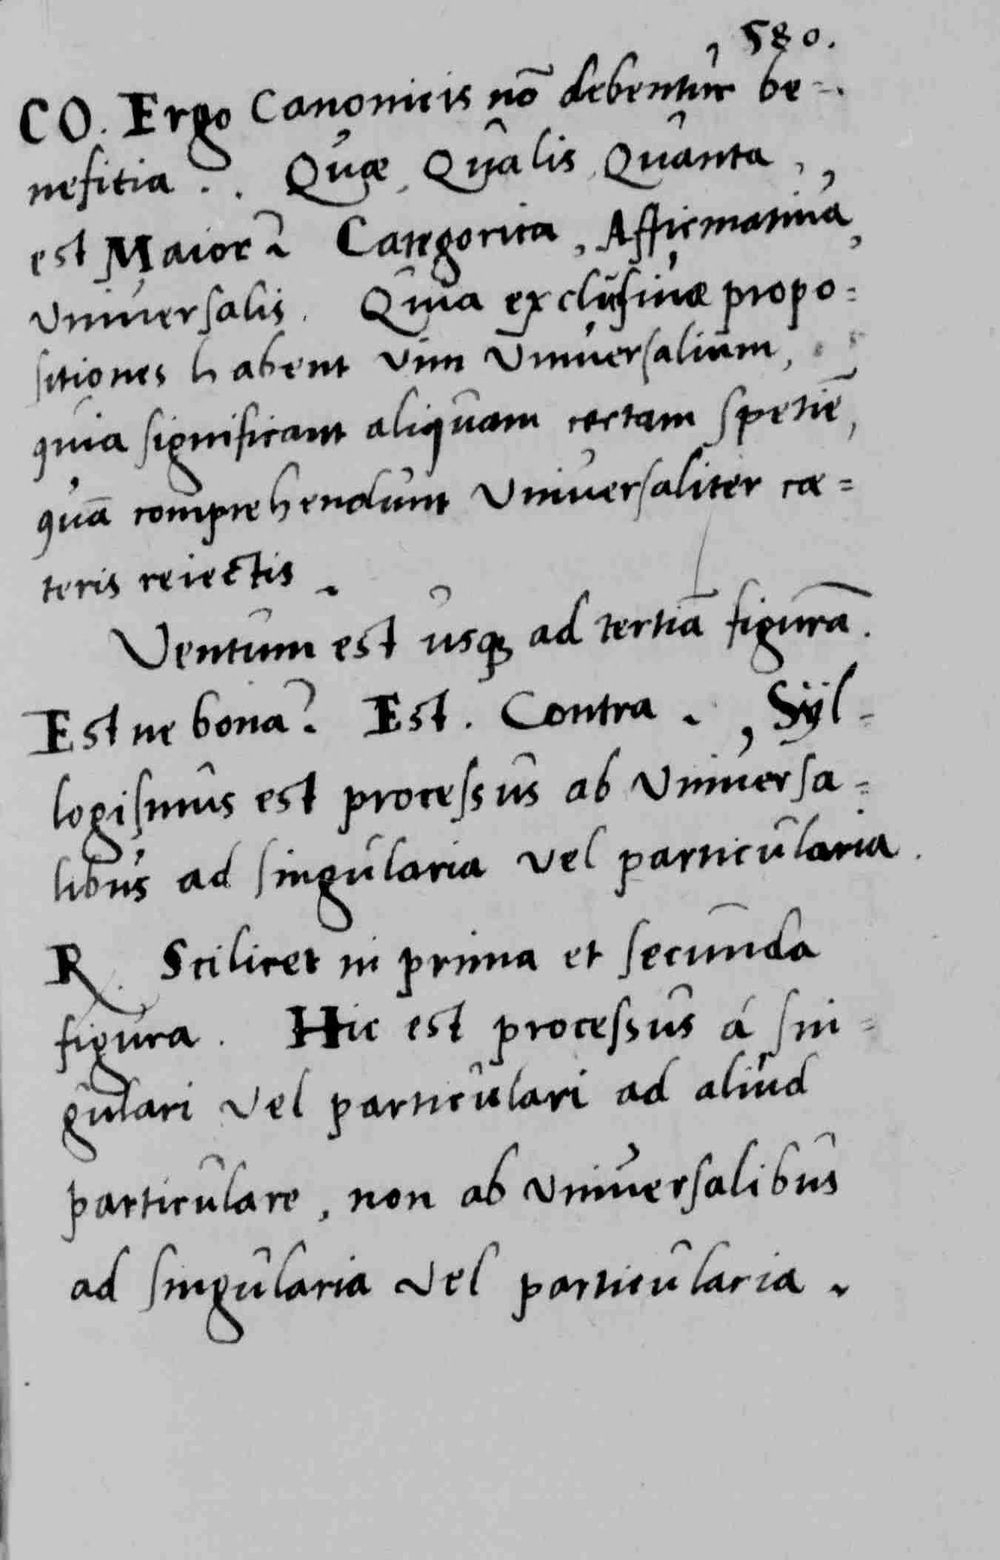 580.
CO. Ergo Canonicis nō debentur be=
nefitia . . Quæ, Qualis, Quanta,
est Maior? Categorica, Affirmatiua,
Uniuersalis. Quia exclusiuæ propo=
sitiones habent vim Uniuersalium,
quia significant aliquam certam spetiē,
quā comprehendunt Uniuersaliter cæ=
teris reiectis.
Ventum est usqꝫ ad tertiā figurā.
Est ne bona? Est. Contra., Syl=
logismus est processus ab Uniuersa=
libus ad singularia vel particularia.
R. Scilicet in prima et secunda
figura. Hic est processus á sin=
gulari vel particulari ad aliud
particulare, non ab uniuersalibus
ad singularia vel particularia.